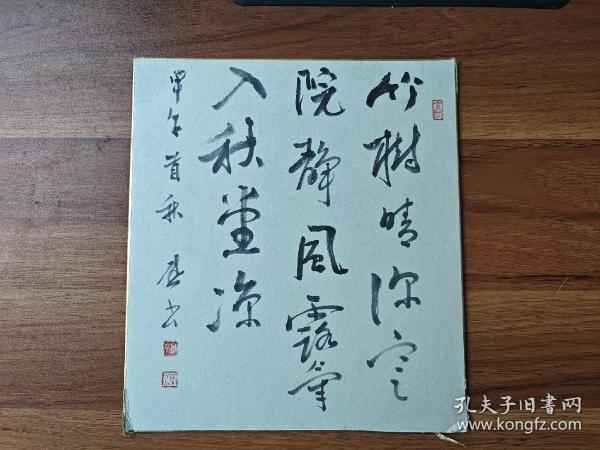 竹樹晴深寒
院靜風露氣
入秋堂涼
甲午首秋 书
孔夫子旧书网
www.kongfz.com